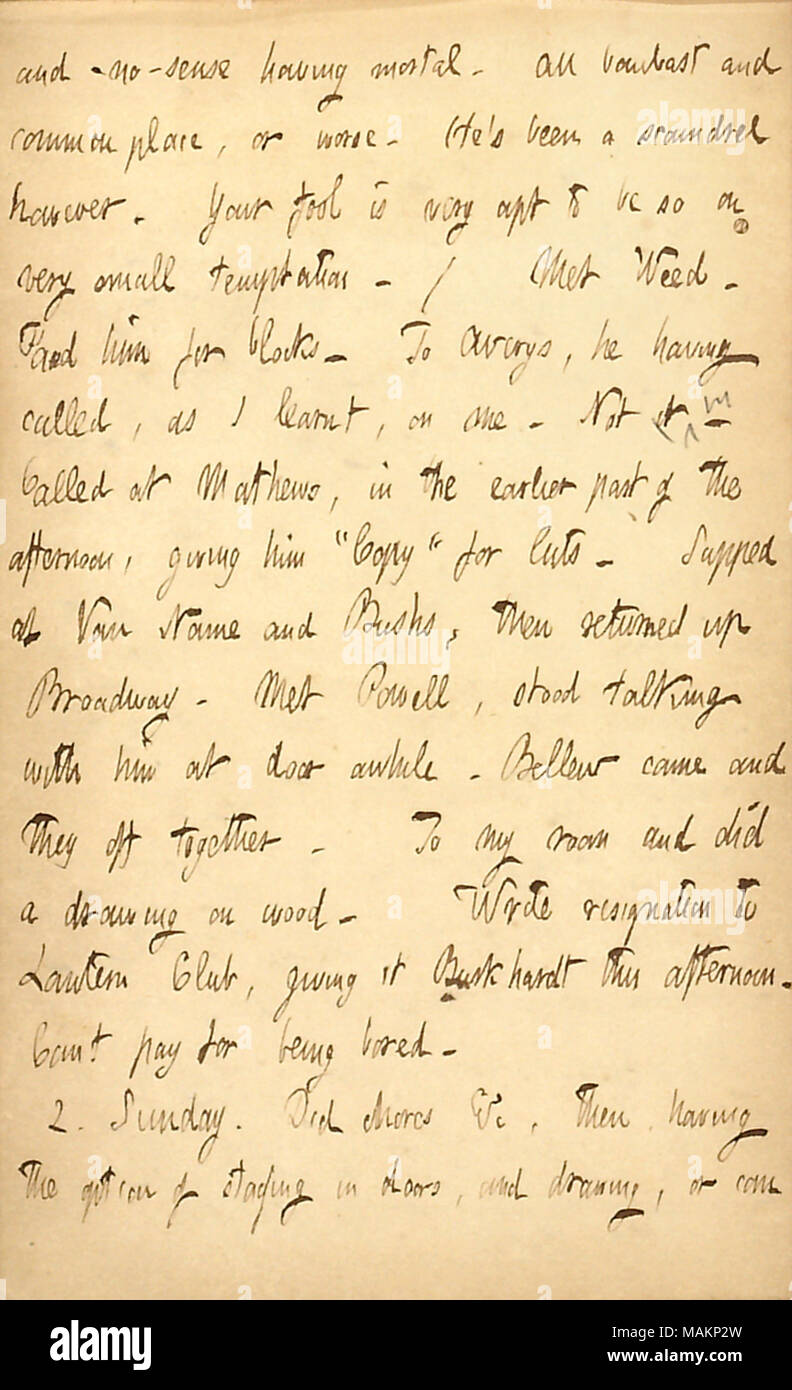 and no-sense having mortal. All bombast and
common place, or worse. He's been a scoundrel
however. Your fool is very apt to be so on
very small temptation. / Met Weed.
him for blocks. To Averys, he having
called, as I learnt, on me. Not in
Called at Mathews, in the earlier part of the
afternoon, giving him "Copy" for Cuts. Supped
at Van Name and Bushs, then returned up
Broadway. Met Powell, stood talking
with him at door awhile. Bellew came and
they off together. To my room and did
a drawing on wood. Wrote resignation to
Lantern Club, giving it Burkhardt this afternoon.
Can't pay for being bored.
2. Sunday. Did Mores &c, then, having
the option of staying in doors, and drawing, or com
alamy
Image ID: MAKP2W
www.alamy.com